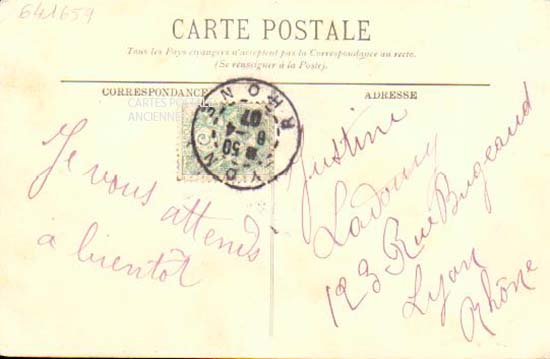 641659
CARTE POSTALE
Tous les Pays étrangers n'acceptent pas la Correspondance au recto.
(Se renseigner à la Poste).
CORRESPONDANCE
CARTES POSTALES
ANCIENNES
ADRESSE
RHONE
6-4
07
50
Je vous attends
à bientôt
Justine
123 Rue Bugeaud
Lyon
Rhône